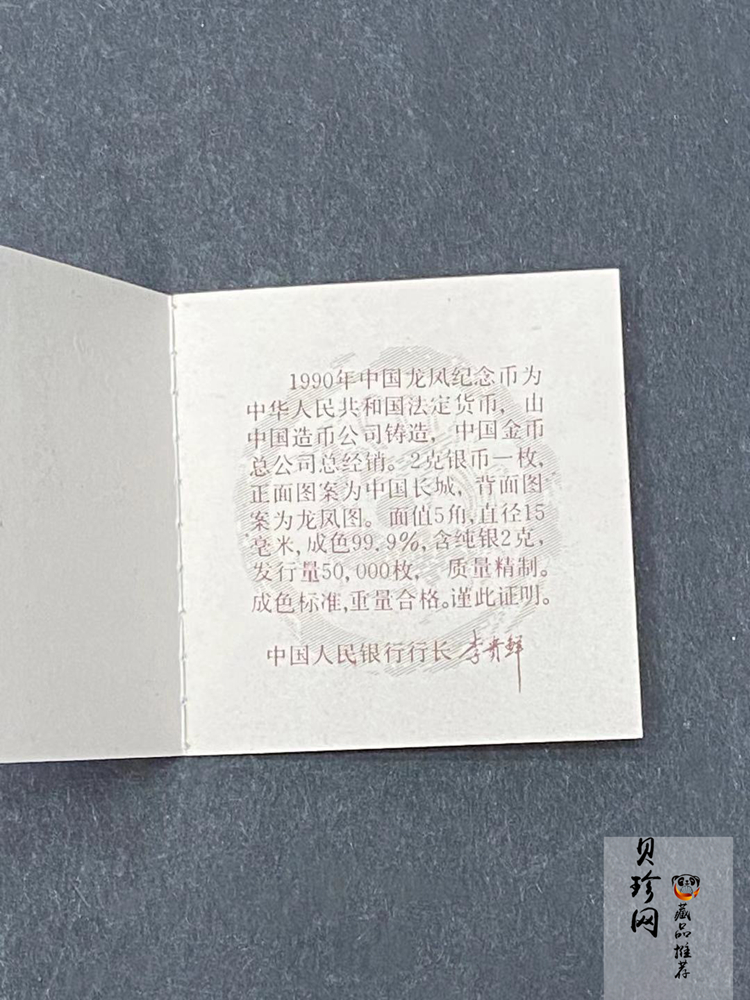 1990年中国龙凤纪念币为
中华人民共和国法定货币，由
中国造币公司铸造，中国金币
总公司总经销。2克银币一枚，
正面图案为中国长城，背面图
案为龙凤图。面值5角，直径15
毫米，成色99.9%，含纯银2克，
发行量50,000枚，质量精制。
成色标准，重量合格。谨此证明。
中国人民银行行长 李贵鲜
贝珍网
藏品推荐